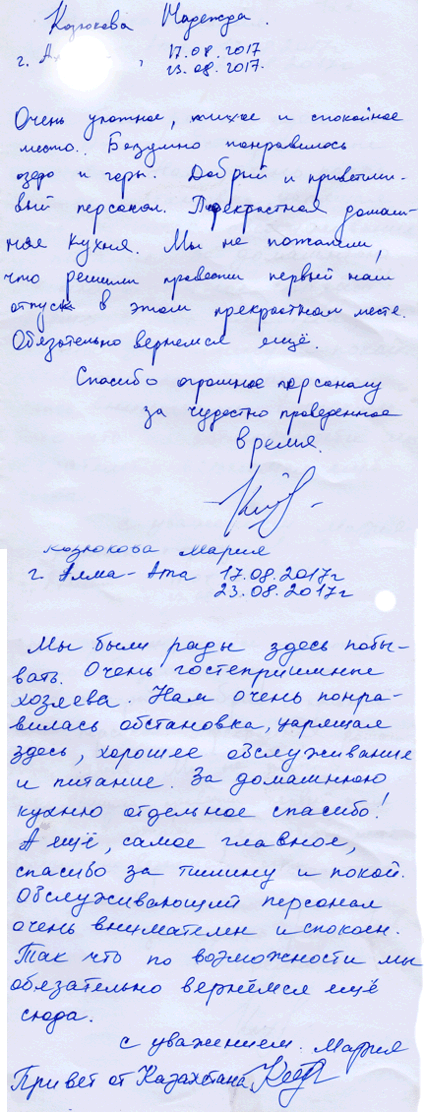 Козюкова Надежда.
г. А , 17.08.2017
23.08.2017.
Очень уютное, тихое и спокойное
место. Безумно понравилось
озеро и горы. Добрый и приветли-
вый персонал. Прекрастная домаш-
няя кухня. Мы не пожалели,
что решили провести первый наш
отпуск в этом прекрастном месте.
Обязательно вернемся ещё.
Спасибо огромное персоналу
за чудестно проведенное
время.
Козюкова Мария
г. Алма-Ата 17.08.2017г
23.08.2017г
Мы были рады здесь побы-
вать. Очень гостеприимные
хозяева. Нам очень понра-
вилась обстановка, царящая
здесь, хорошее обслуживание
и питание. За домашнюю
кухню отдельное спасибо!
А ещё, самое главное,
спасибо за тишину и покой.
Обслуживающий персонал
очень внимателен и спокоен.
Так что по возможности мы
обязательно вернёмся ещё
сюда.
с уважением. Мария
Привет от Казахстана